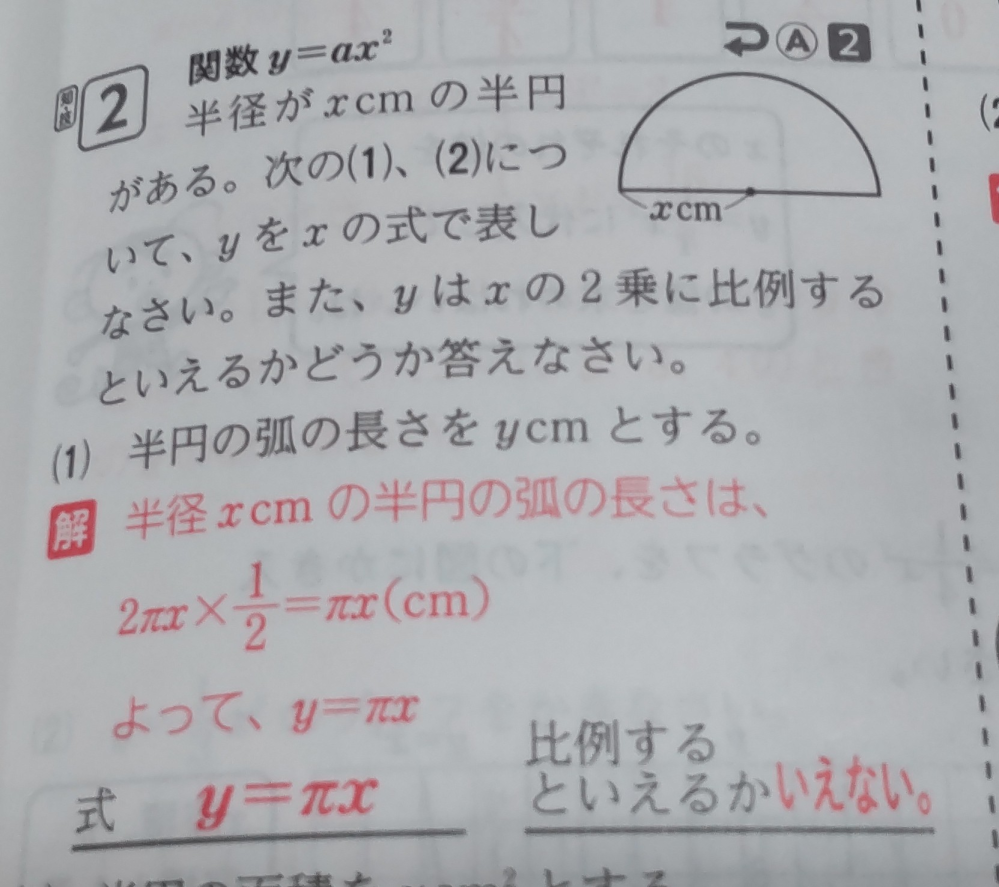 関数 y=ax²
Ⓐ 2
2 半径が x cm の半円
がある。次の(1)、(2)につ
いて、y を x の式で表し
なさい。また、y は x の 2 乗に比例する
といえるかどうか答えなさい。
x cm
(1) 半円の弧の長さを y cm とする。
解 半径 x cm の半円の弧の長さは、
2πx×1/2=πx(cm)
よって、y=πx
式 y=πx
比例する
といえるか いえない。